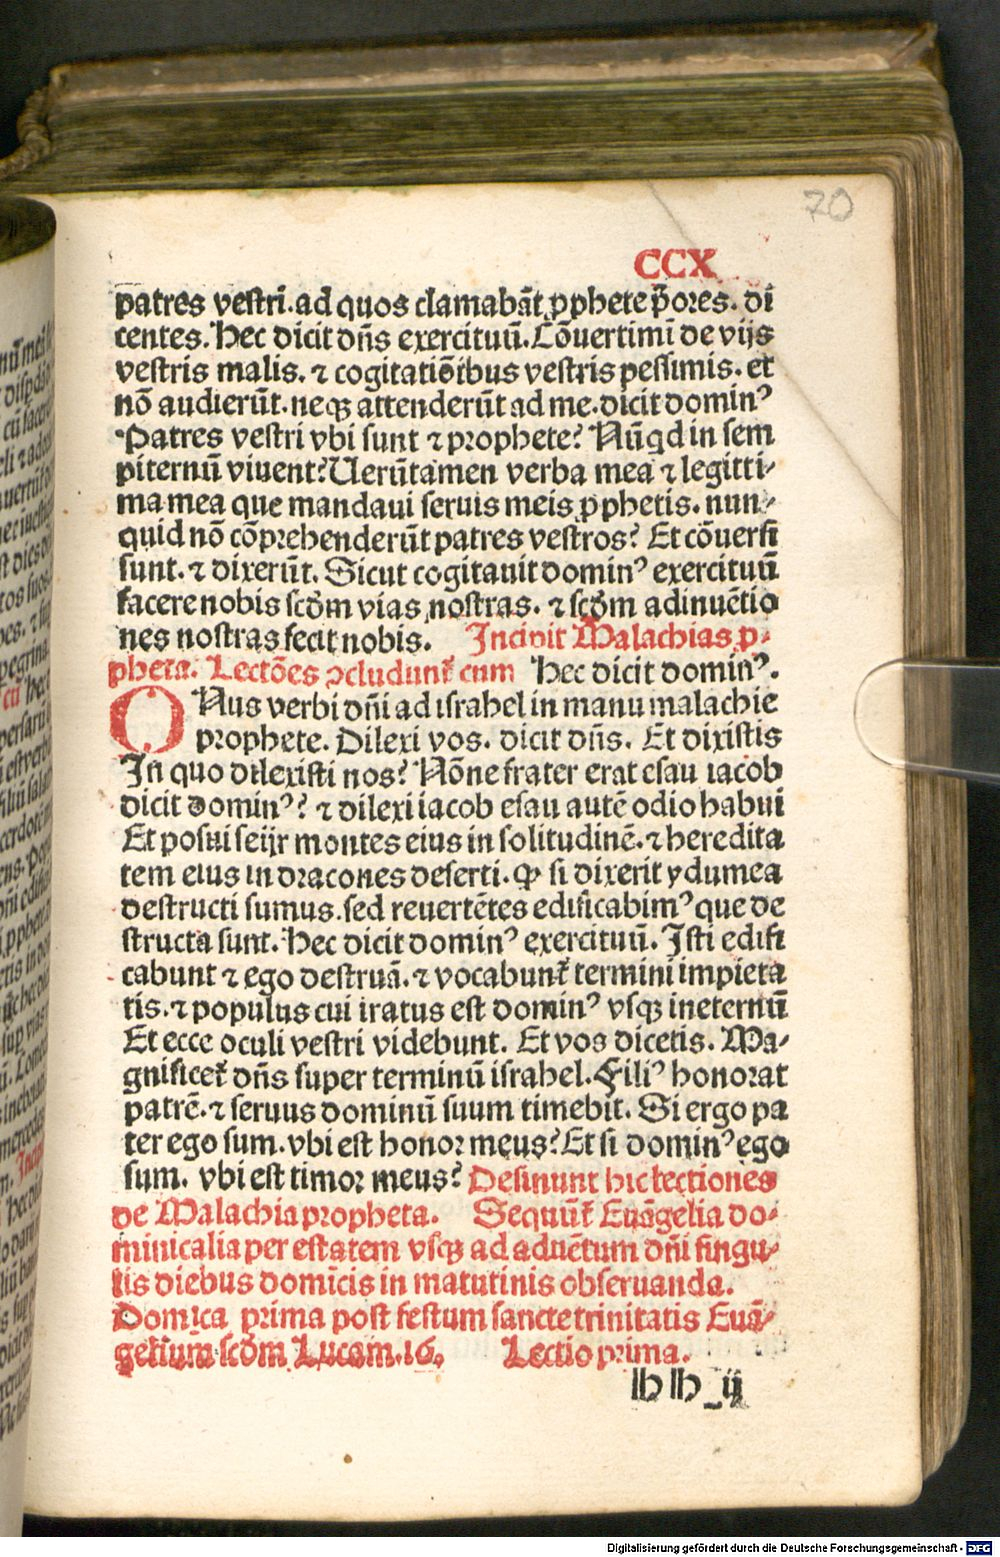 70
CCX
patres vestri. ad quos clamabāt ꝓphete p̄ores. di
centes. Hec dicit dn̄s exercituū. Cōuertimī de vijs
vestris malis. ⁊ cogitatiōibus vestris pessimis. et
nō audierūt. neqꝫ attenderūt ad me. dicit dominꝰ
Patres vestri vbi sunt ⁊ prophete? Nūqd in sem
piternū viuent? Uerūtamen verba mea ⁊ legitti-
ma mea que mandaui seruis meis ꝓphetis. nun-
quid nō cōprehenderūt patres vestros? Et cōuersi
sunt. ⁊ dixerūt. Sicut cogitauit dominꝰ exercituū
facere nobis scd̄m vias nostras. ⁊ scd̄m adinuētio
nes nostras fecit nobis. Incipit Malachias ꝓ-
pheta. Lectōes ꝯcludunt᷑ cum Hec dicit dominꝰ.
ONus verbi dn̄i ad israhel in manu malachie
prophete. Dilexi vos. dicit dn̄s. Et dixistis
In quo dilexisti nos? Nōne frater erat esau iacob
dicit dominꝰ? ⁊ dilexi iacob esau autē odio habui
Et posui seijr montes eius in solitudinē. ⁊ heredita
tem eius in dracones deserti. Ꝙ si dixerit ydumea
destructi sumus. sed reuertētes edificabimꝰ que de
structa sunt. Hec dicit dominꝰ exercituū. Isti edifi
cabunt ⁊ ego destruā. ⁊ vocabunt᷑ termini impieta
tis. ⁊ populus cui iratus est dominꝰ vsqꝫ in eternū
Et ecce oculi vestri videbunt. Et vos dicetis. Ma-
gnificet᷑ dn̄s super terminū israhel. Filiꝰ honorat
patrē. ⁊ seruus dominū suum timebit. Si ergo pa
ter ego sum. vbi est honor meus? Et si dominꝰ ego
sum. vbi est timor meus? Desinunt hic lectiones
de Malachia propheta. Sequūt᷑ Euāgelia do-
minicalia per estatem vsqꝫ ad aduētum dn̄i singu-
lis diebus domīcis in matutinis obseruanda.
Domīca prima post festum sancte trinitatis Euā-
gelium scd̄m Lucam. 16. Lectio prima.
hh ij
Digitalisierung gefördert durch die Deutsche Forschungsgemeinschaft - DFG